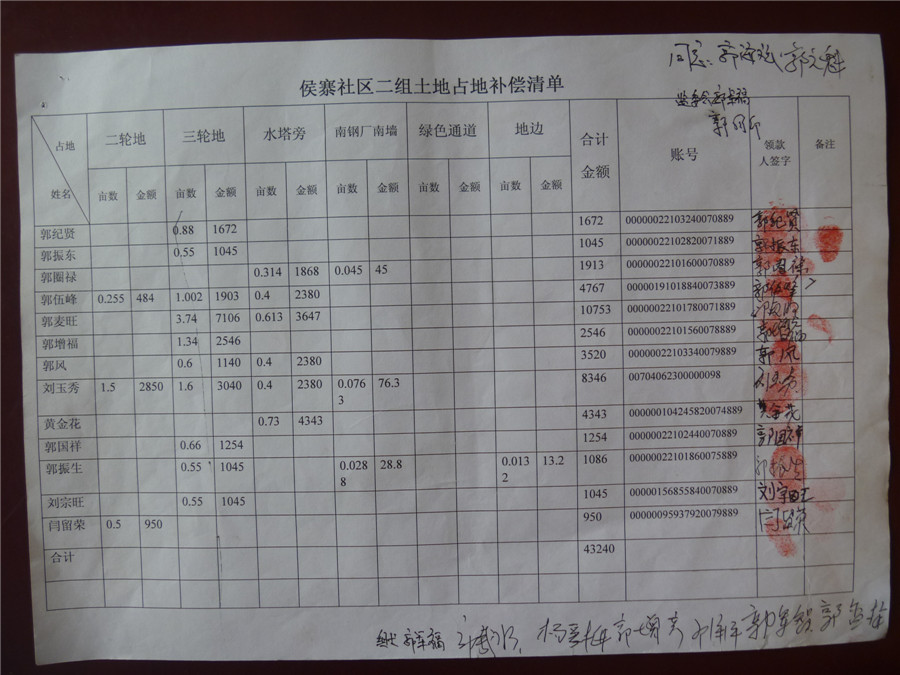 同意：郭
侯寨社区二组土地占地补偿清单
占地 姓名 二轮地 三轮地 水塔旁 南钢厂南墙 绿色通道 地边 合计金额 账号 领款人签字 备注
亩数 金额 亩数 金额 亩数 金额 亩数 金额 亩数 金额 亩数 金额
郭纪贤 0.88 1672 1672 00000022103240070889 郭纪贤
郭振东 0.55 1045 1045 00000022102820071889 郭振东
郭圈禄 0.314 1868 0.045 45 1913 00000022101600070889 郭圈禄
郭伍峰 0.255 484 1.002 1903 0.4 2380 4767 00000191018840073889 郭伍峰
郭麦旺 3.74 7106 0.613 3647 10753 00000022101780071889
郭增福 1.34 2546 2546 00000022101560078889 郭增福
郭风 0.6 1140 0.4 2380 3520 00000022103340079889 郭风
刘玉秀 1.5 2850 1.6 3040 0.4 2380 0.0763 76.3 8346 00704062300000098 刘玉秀
黄金花 0.73 4343 4343 000000104245820074889 黄金花
郭国祥 0.66 1254 1254 00000022102440070889 郭国祥
郭振生 0.55 1045 0.0288 28.8 0.0132 13.2 1086 00000022101860075889 郭振生
刘宗旺 0.55 1045 1045 00000156855840070889 刘宗旺
闫留荣 0.5 950 950 00000095937920079889 闫留荣
合计 43240